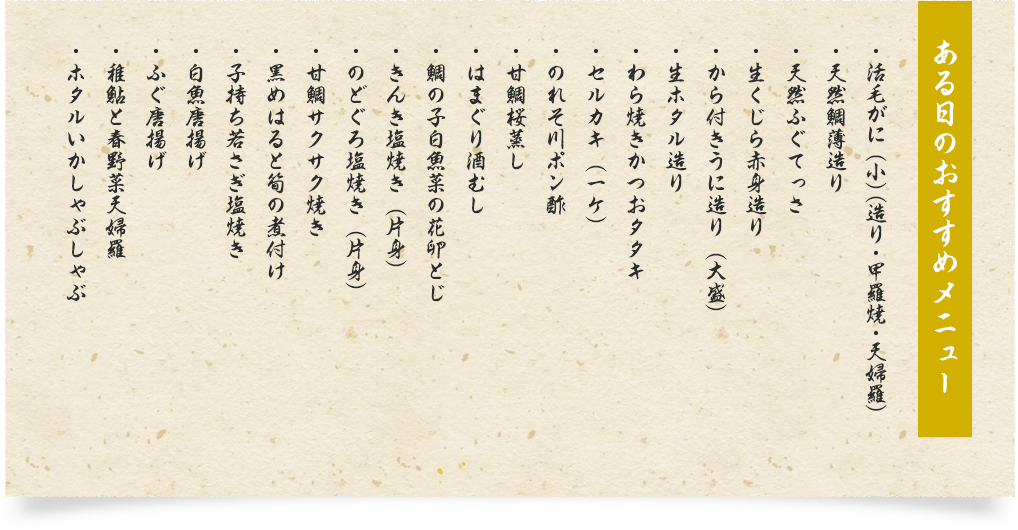 ある日のおすすめメニュー
・活毛がに（小）（造り・甲羅焼・天婦羅）
・天然鯛薄造り
・天然ふぐてっさ
・生くじら赤身造り
・から付きうに造り（大盛）
・生ホタル造り
・わら焼きかつおタタキ
・セルカキ（一ケ）
・のれそ川ポン酢
・甘鯛桜蒸し
・はまぐり酒むし
・鯛の子白魚菜の花卵とじ
・きんき塩焼き（片身）
・のどぐろ塩焼き（片身）
・甘鯛サクサク焼き
・黒めはると筍の煮付け
・子持ち若さぎ塩焼き
・白魚唐揚げ
・ふぐ唐揚げ
・稚鮎と春野菜天婦羅
・ホタルいかしゃぶしゃぶ